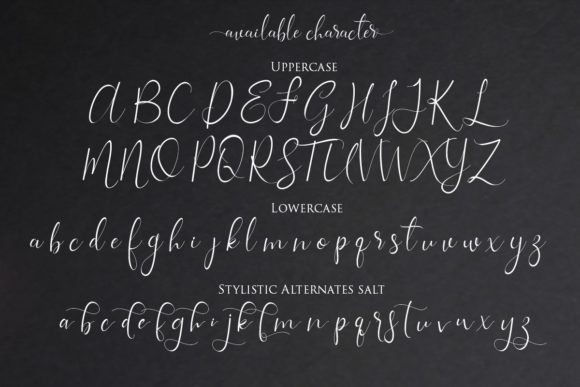 available character
Uppercase
A B C D E F G H I J K L
M N O P Q R S T U V W X Y Z
Lowercase
a b c d e f g h i j k l m n o p q r s t u v w x y z
Stylistic Alternates salt
a b c d e f g h i j k l m n o p q r s t u v w x y z